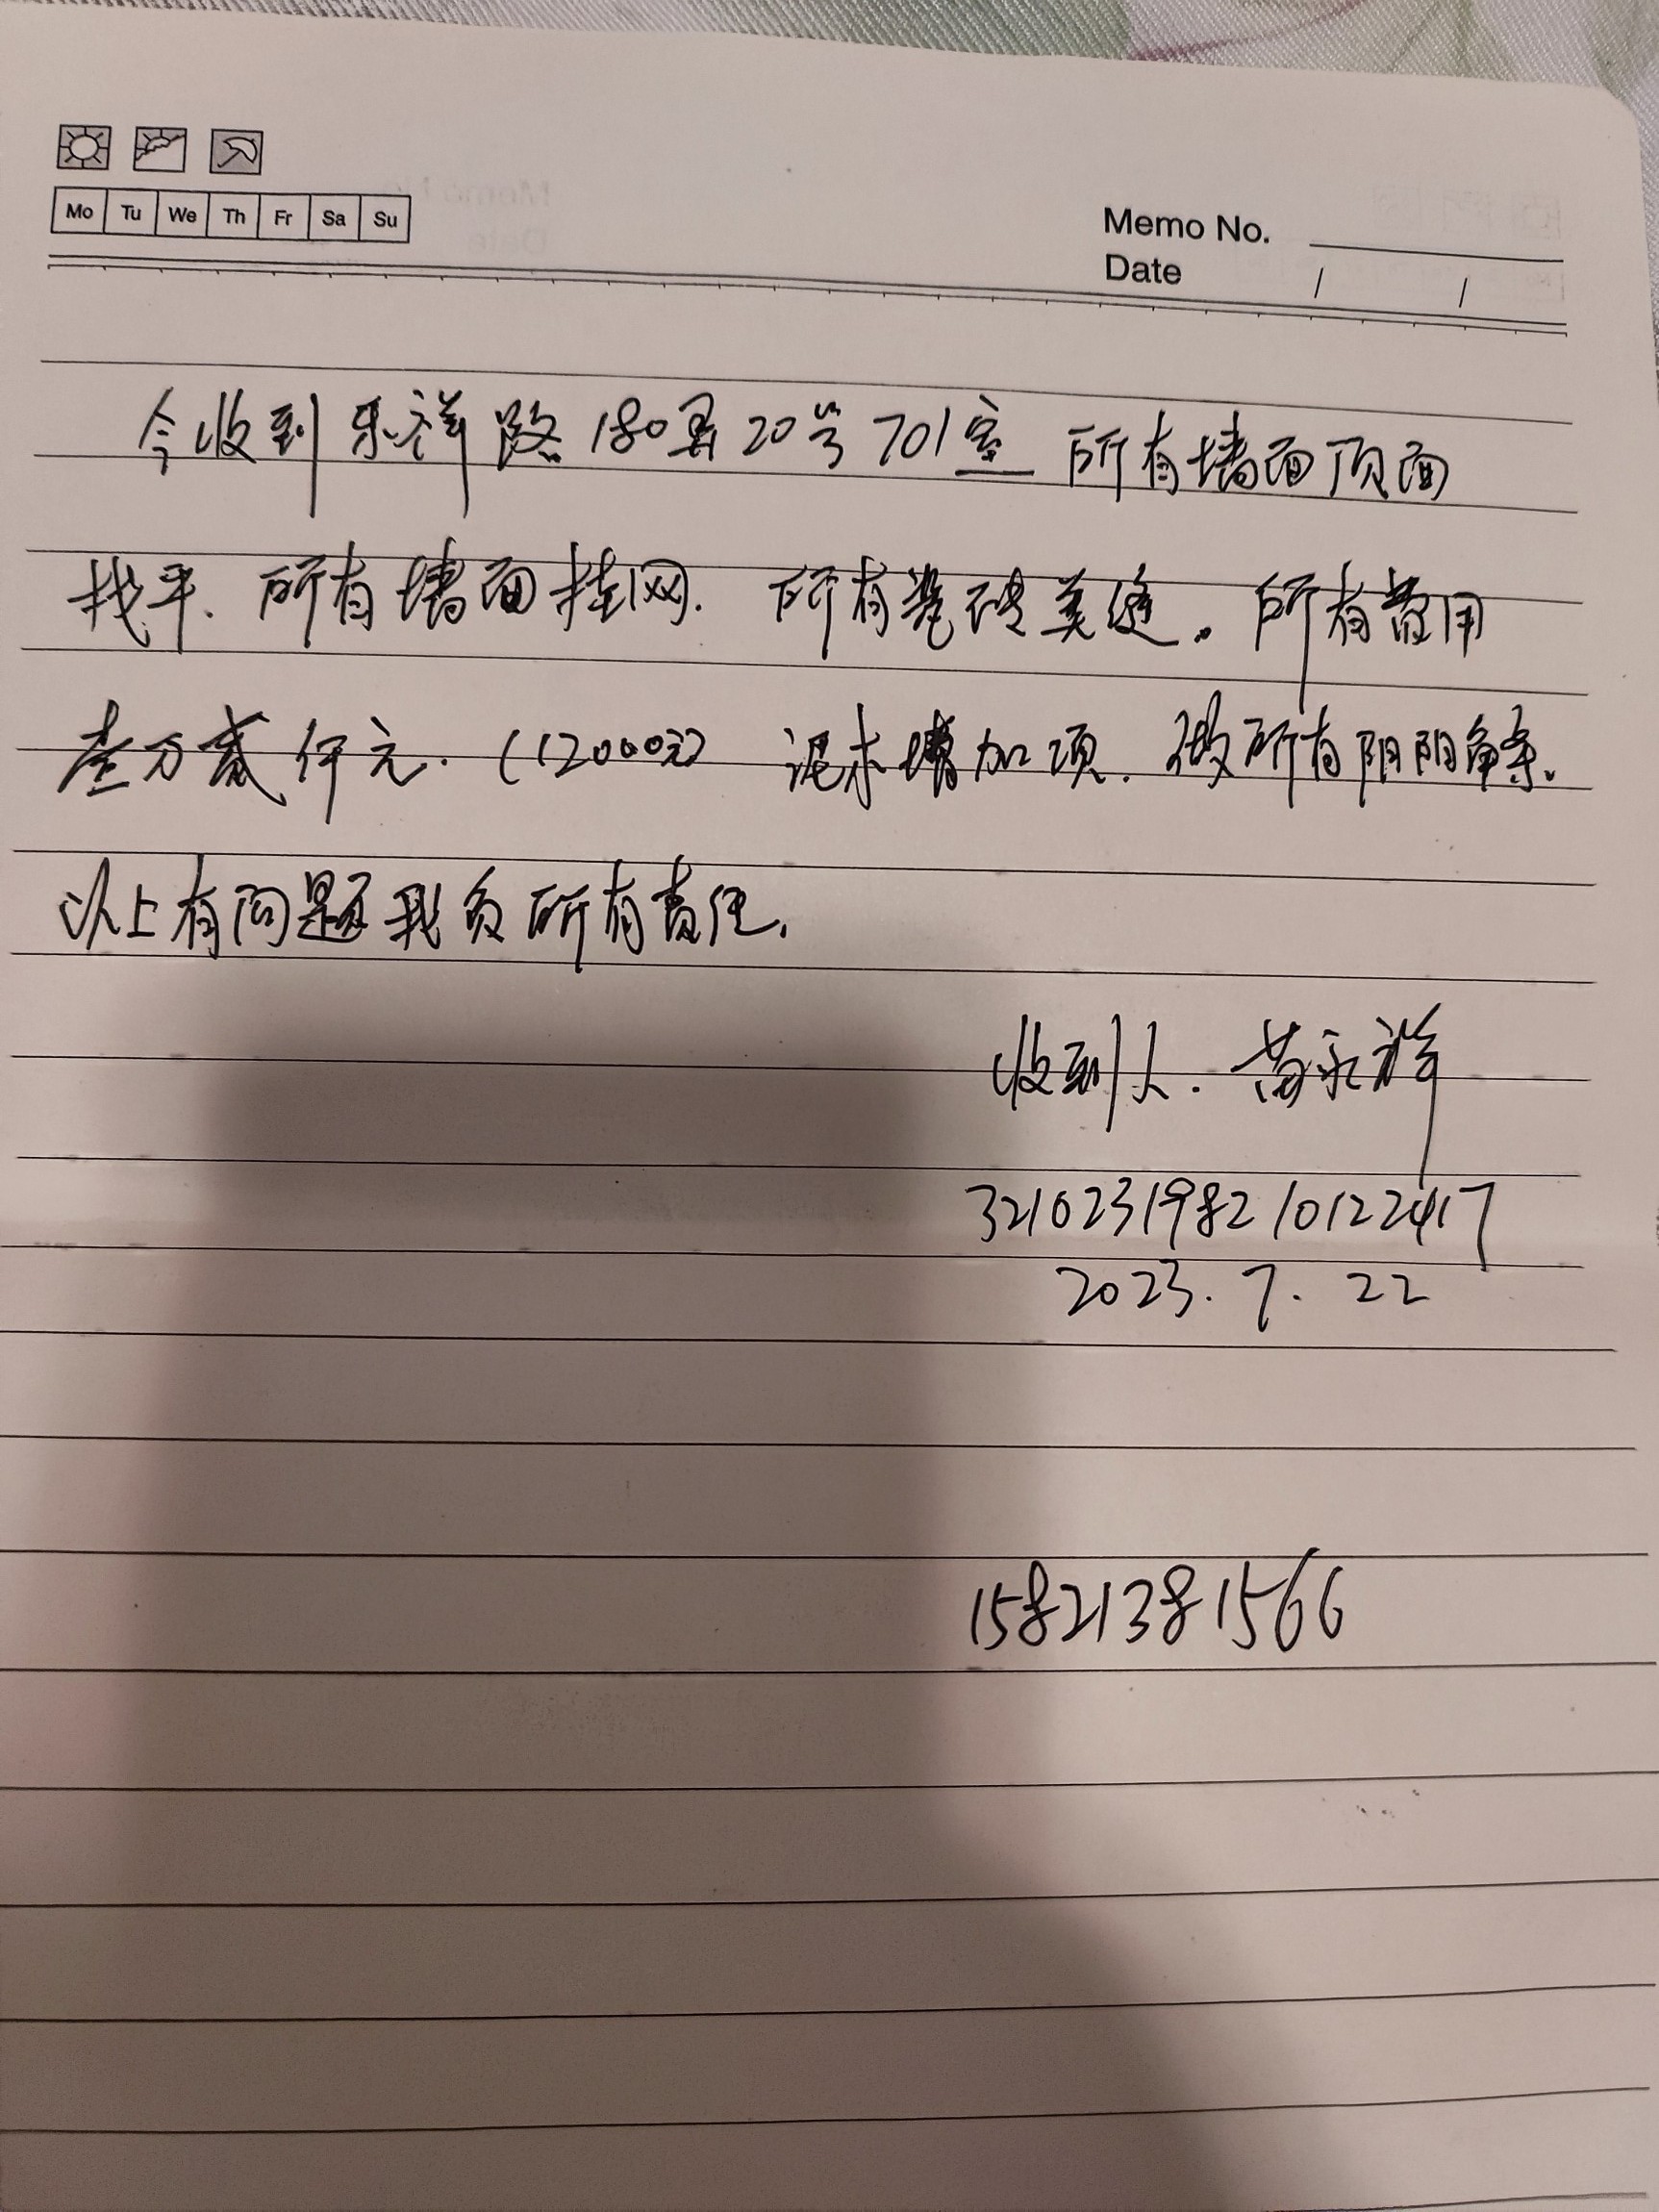 Mo Tu We Th Fr Sa Su
Memo No.
Date / /
今收到乐祥路180弄20号701室 所有墙面顶面
找平、所有墙面挂网. 所有瓷砖美缝。所有费用
壹万贰仟元.(12000元) 泥木增加项.做所有阴阳角条.
以上有问题我负所有责任.
收到人.黄永祥
321023198210122417
2023.7.22
15821381566